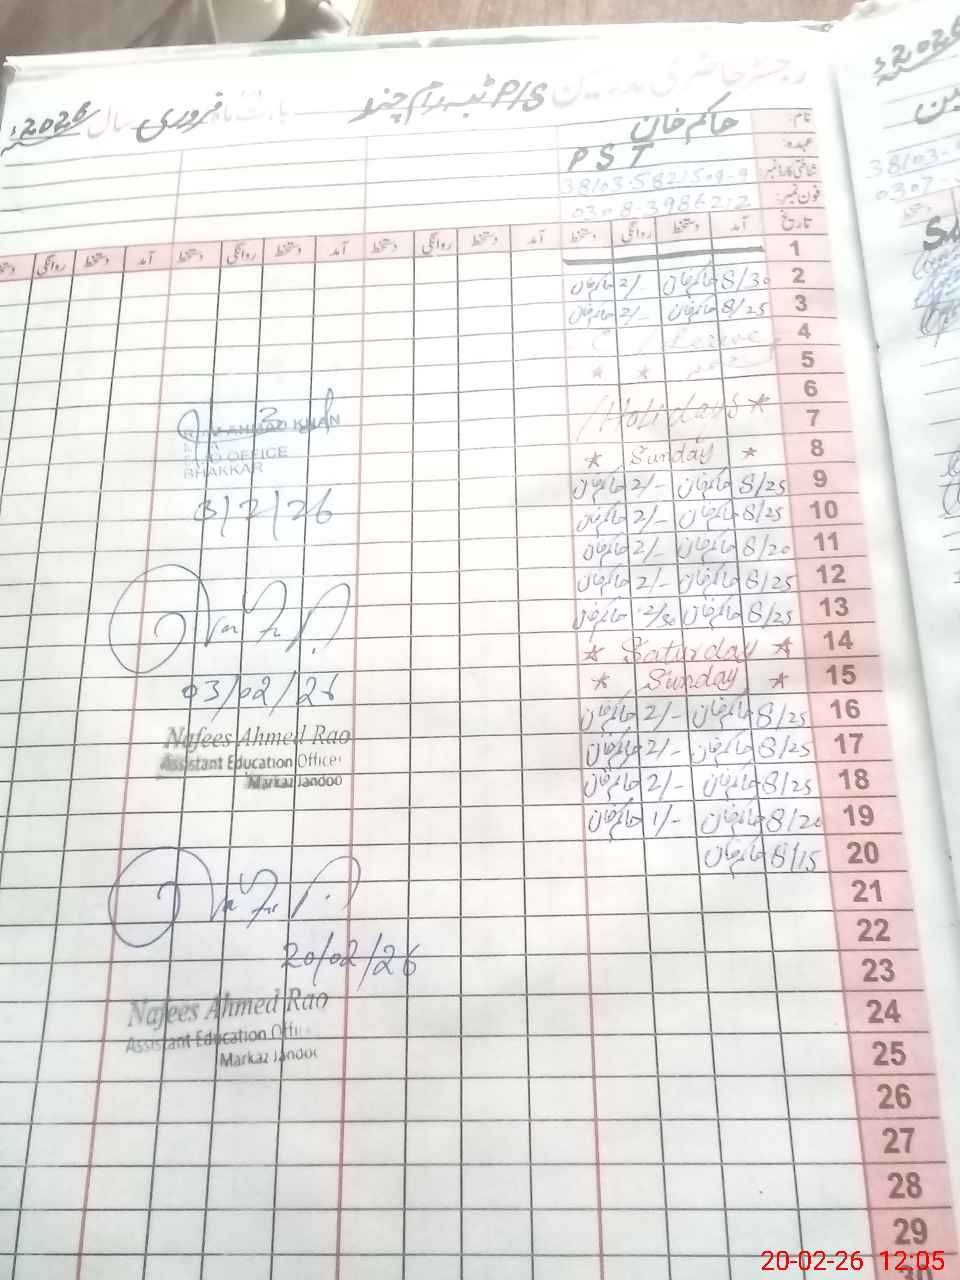 رجسٹر حاضری مدرسین P/S ٹبہ رام چند بابت ماہ فروری سال 2026ء
نام: حاکم خان
عہدہ: PST
شناختی کارڈ نمبر: 38103-5821509-9
فون نمبر: 0308-3986212
تاریخ آمد دستخط روانگی دستخط آمد دستخط روانگی دستخط آمد دستخط روانگی دستخط
1
2 8/30 حاکم خان 2/- حاکم خان
3 8/25 حاکم خان 2/- حاکم خان
4 C/Leave
5 * *
6
7 Holidays *
8 * Sunday *
9 8/25 حاکم خان 2/- حاکم خان
10 8/25 حاکم خان 2/- حاکم خان
11 8/20 حاکم خان 2/- حاکم خان
12 8/25 حاکم خان 2/- حاکم خان
13 8/25 حاکم خان 12/30 حاکم خان
14 * Saturday *
15 * Sunday *
16 8/25 حاکم خان 2/- حاکم خان
17 8/25 حاکم خان 2/- حاکم خان
18 8/25 حاکم خان 2/- حاکم خان
19 8/20 حاکم خان 1/- حاکم خان
20 8/15 حاکم خان
21
22
23
24
25
26
27
28
29
30
AHMAD KHAN
OFFICE
BHAKKAR
3/2/26
03/02/26
Nafees Ahmed Rao
Assistant Education Officer
Markaz Jandoo
20/02/26
Nafees Ahmed Rao
Assistant Education Officer
Markaz Jandoo
2026ء
38103-
0307-
20-02-26 12:05